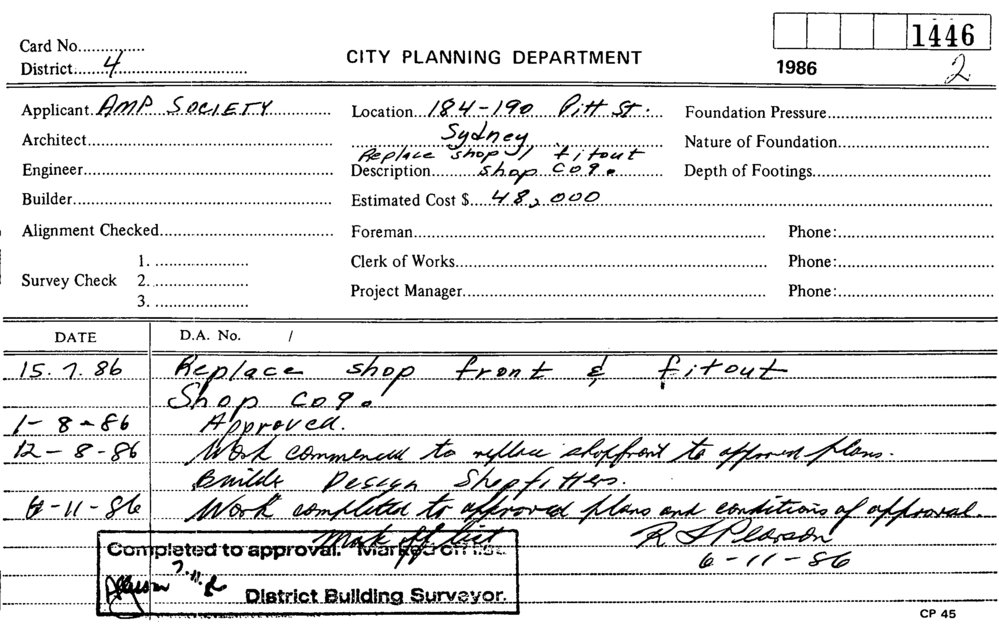 1446
Card No.
CITY PLANNING DEPARTMENT
1986
2
District 4
Applicant AMP SOCIETY
Location 184-190 Pitt St.
Foundation Pressure
Architect
Sydney
Nature of Foundation
Replace shop / fitout
Engineer
Description shop C09.
Depth of Footings
Builder
Estimated Cost $ 48,000
Alignment Checked
Foreman
Phone:
1.
Clerk of Works
Phone:
Survey Check 2.
Project Manager
Phone:
3.
DATE
D.A. No. /
15.7.86 Replace shop front & fitout
Shop C09.
1-8-86 Approved.
12-8-86 Work commenced to replace shopfront to approved plans.
Builder Design Shopfitters.
6-11-86 Work completed to approved plans and conditions of approval.
Mark off list R Pearson
6-11-86
Completed to approval. Marked off list.
7.11.86
District Building Surveyor.
CP 45